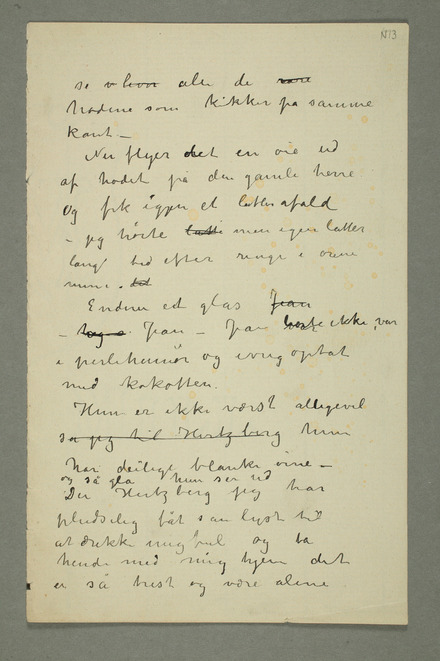 N13
se hvor alle de
hodene som kikker på samme
kant –
Nu flyer det en oie ud
af hodet på den gamle herre
og fik igjen et latteranfald
– jeg hørte min egen latter
længe bed efter ringe i ørene
mine.
Endnu et glas Jean
– Jean – Jean hørte ikke, var
i perlehumør og ivrig optat
med kokotten.
Hun er ikke værst alligevel
sa jeg til Hertzberg hun
har deilige blanke øine –
og så gla hun ser ud
Du Hertzberg jeg har
pludselig fåt san lyst til
at drikke mig ful og ta
hende med mig hjem det
er så trist og være alene